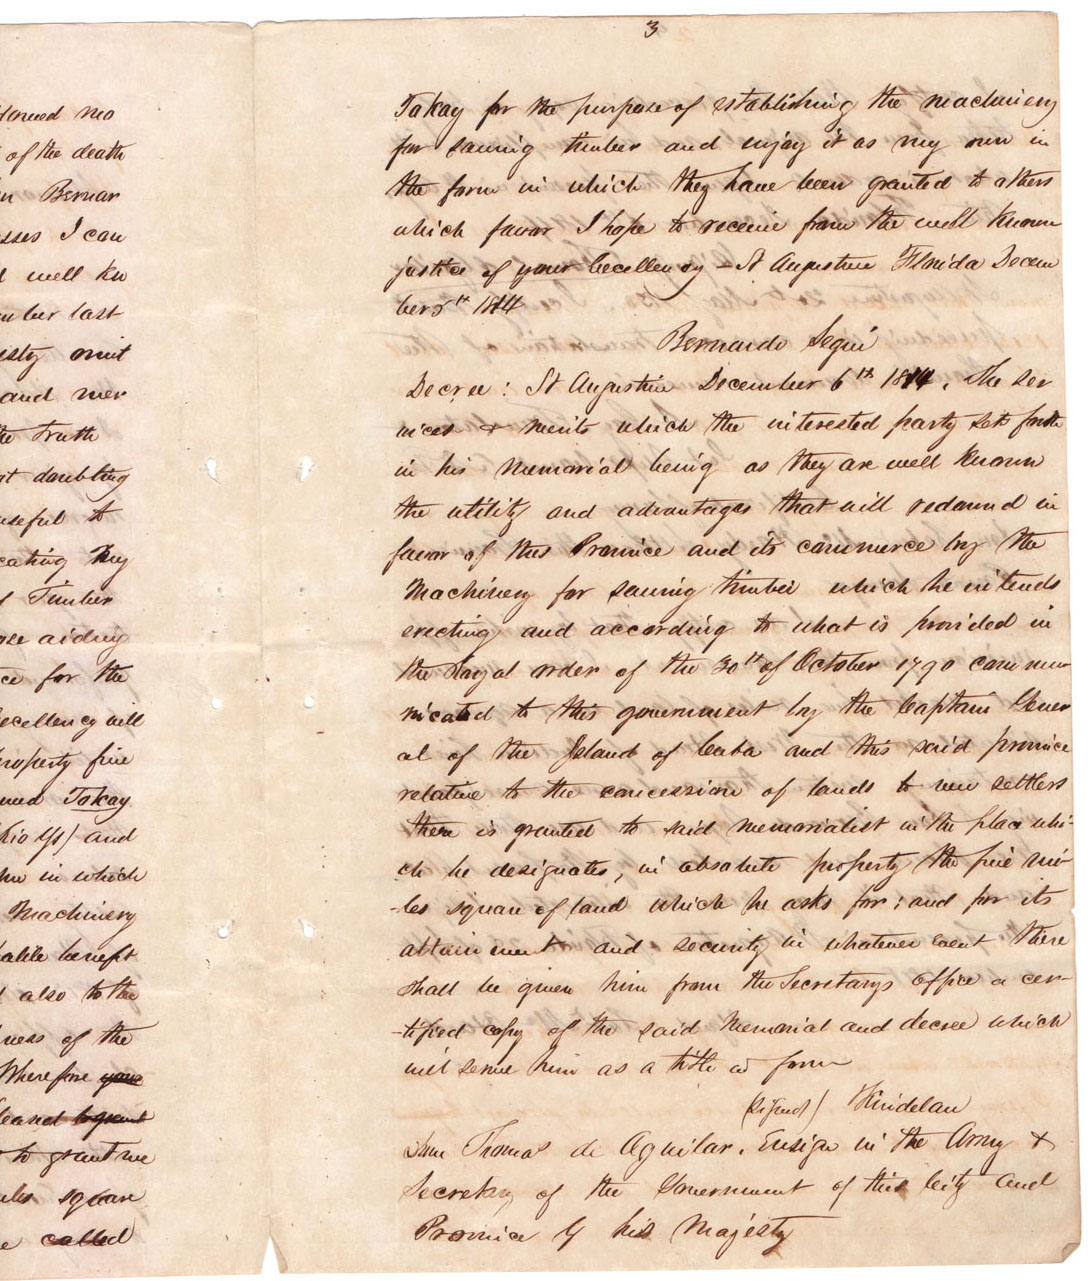 3
of the death
Bernar
I can
well kn
mber last
omit
and mer
the truth
doubting
useful to
cating my
Timber
aiding
ce for the
Excellency will
property five
named Tokay
and
in which
Machinery
benefit
also to the
ness of the
Wherefore your
to grant me
square
called
Tokay for the purpose of establishing the machinery
for sawing timber and enjoy it as my own in
the form in which they have been granted to others
which favor I hope to receive from the well known
justice of your Excellency - St Augustine Florida Decem
ber 5th 1814
Bernardo Segui
Decree: St Augustin December 6th 1814. The ser
vices & merits which the interested party sets forth
in his memorial being as they are well known
the utility and advantages that will redound in
favor of this Province and its commerce by the
Machinery for sawing timber which he intends
erecting and according to what is provided in
the Royal order of the 20th of October 1790 commu
nicated to this government by the Captain Gener
al of the Island of Cuba and this said province
relative to the concession of lands to new settlers
there is granted to said memorialist in the place whi-
ch he designates, in absolute property the five mi-
-les square of land which he asks for; and for its
attainment and security in whatever event there
shall be given him from the Secretarys office a cer-
-tified copy of the said Memorial and decree which
will serve him as a title in form
(signed) Kindelan
Don Thomas de Aguilar, Ensign in the Army &
Secretary of the Government of this City and
Province by his Majesty